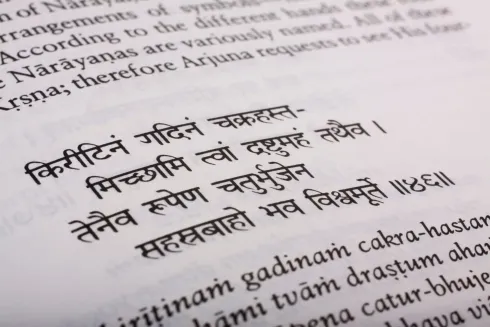 n of
rrangements of symbols
According to the different hands these
Nārāyaṇas are variously named. All of these
Kṛṣṇa; therefore Arjuna requests to see His four-
किरीटिनं गदिनं चक्रहस्त-
मिच्छामि त्वां द्रष्टुमहं तथैव ।
तेनैव रूपेण चतुर्भुजेन
सहस्रबाहो भव विश्वमूर्ते ॥४६॥
irīṭinaṁ gadinaṁ cakra-hastam
hāmi tvāṁ draṣṭum aha
peṇa catur-bhuje